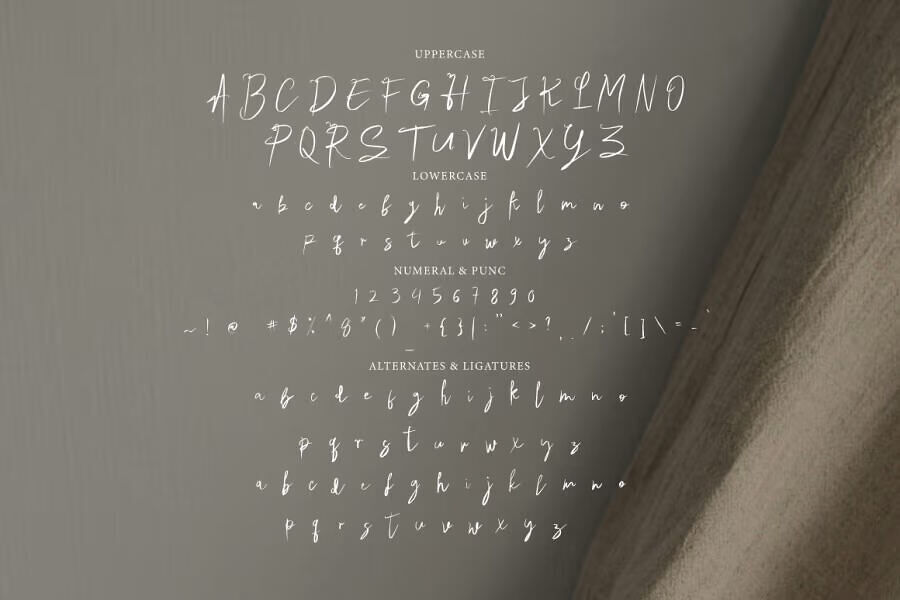 UPPERCASE
A B C D E F G H I J K L M N O
P Q R S T U V W X Y Z
LOWERCASE
a b c d e f g h i j k l m n o
p q r s t u v w x y z
NUMERAL & PUNC
1 2 3 4 5 6 7 8 9 0
~ ! @ # $ % ^ & * ( ) _ + { } | : " < > ? , . / ; ' [ ] \ = - `
ALTERNATES & LIGATURES
a b c d e f g h i j k l m n o
p q r s t u v w x y z
a b c d e f g h i j k l m n o
p q r s t u v w x y z